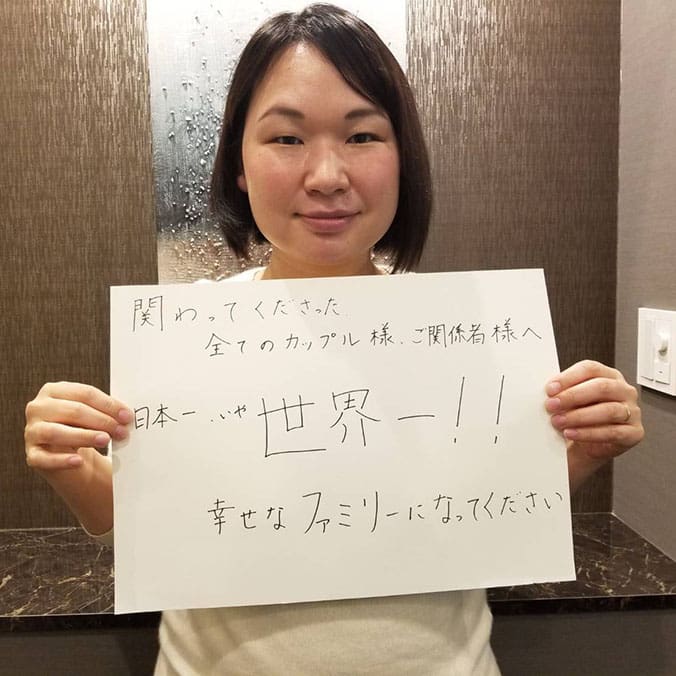 関わってくださった、
全てのカップル様、ご関係者様へ
日本一、いや世界一!!
幸せなファミリーになってください